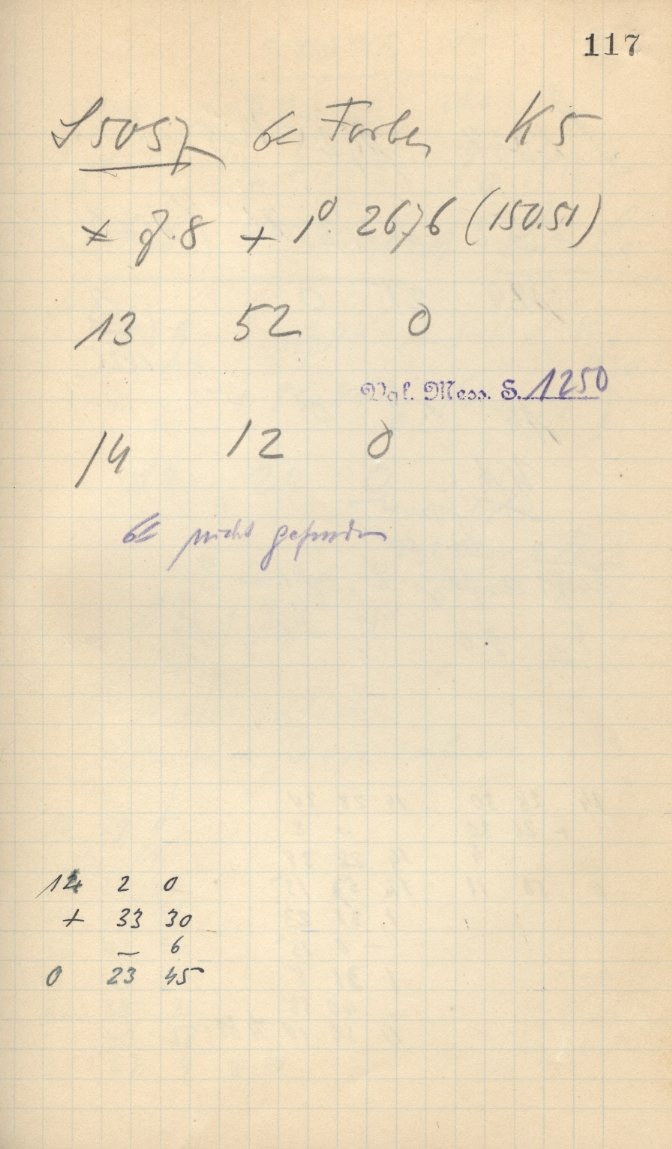 117
S5057 6≤ Farben K5
8.8 + 1° 2676 (150.51)
13 52 0
Vgl. Mess. S. 1250
14 12 0
6≤ nicht gefunden
14 2 0
+ 33 30
— 6
0 23 45